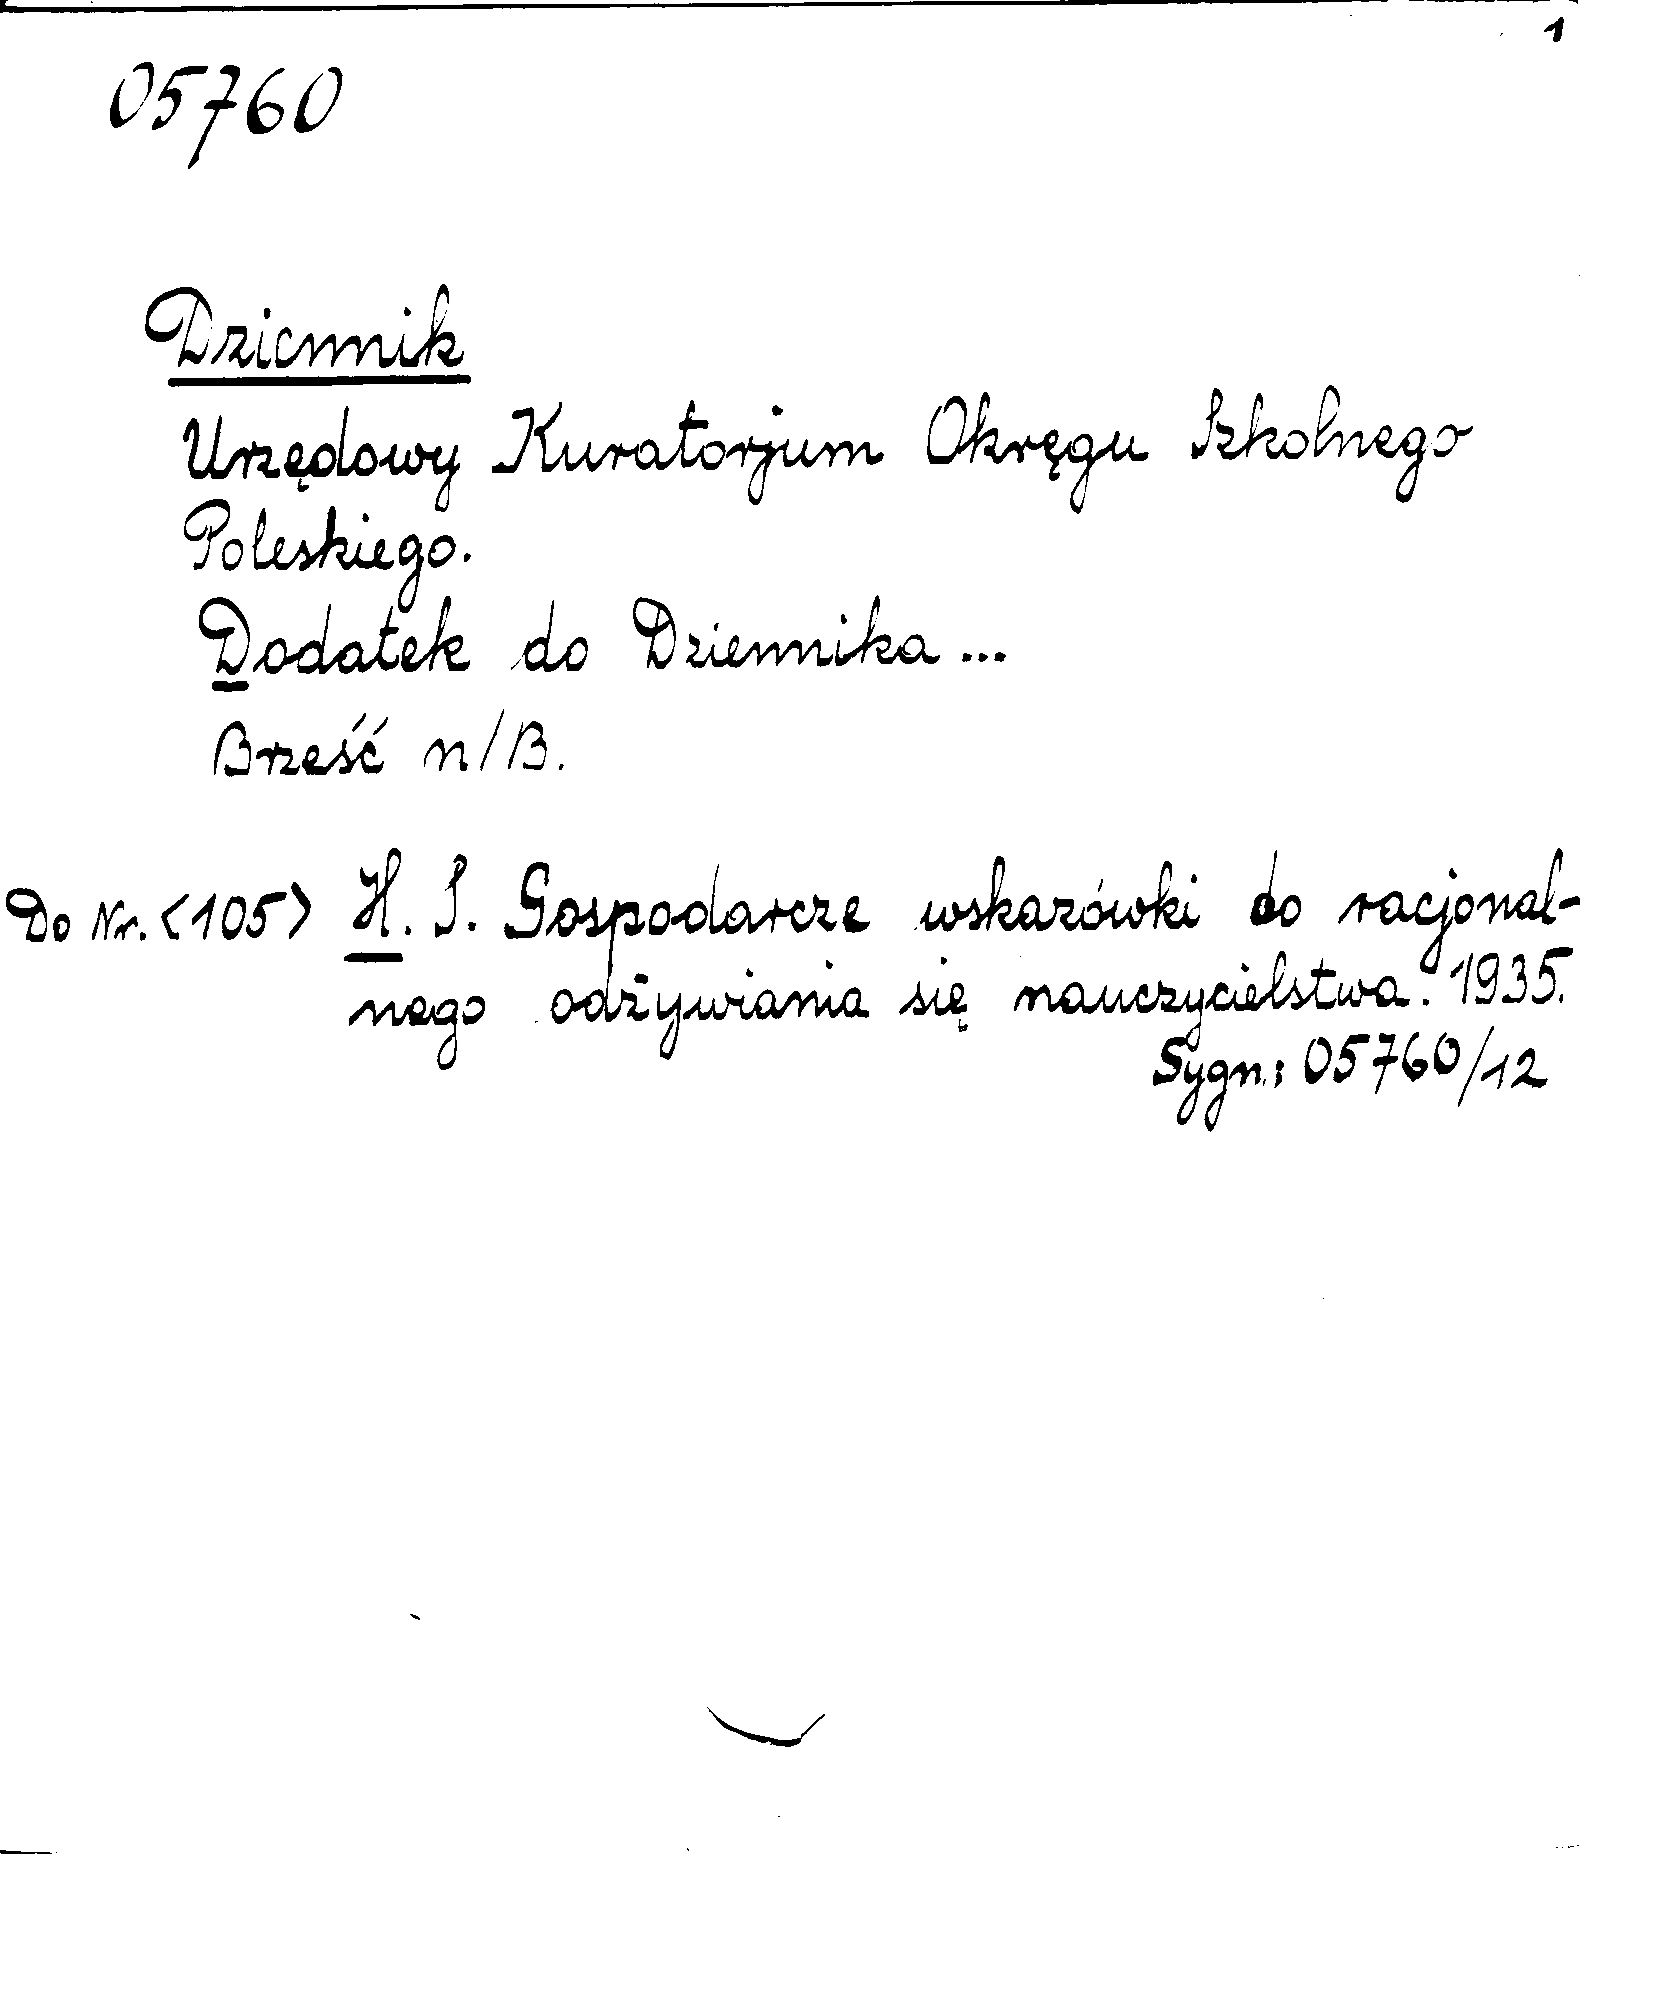 1
05760
Dziennik
Urzędowy Kuratorjum Okręgu Szkolnego
Poleskiego.
Dodatek do Dziennika...
Brześć n/B.
Do Nr. <105> H. S. Gospodarcze wskazówki do racjonal-
nego odżywiania się nauczycielstwa. 1935.
Sygn.: 05760/12